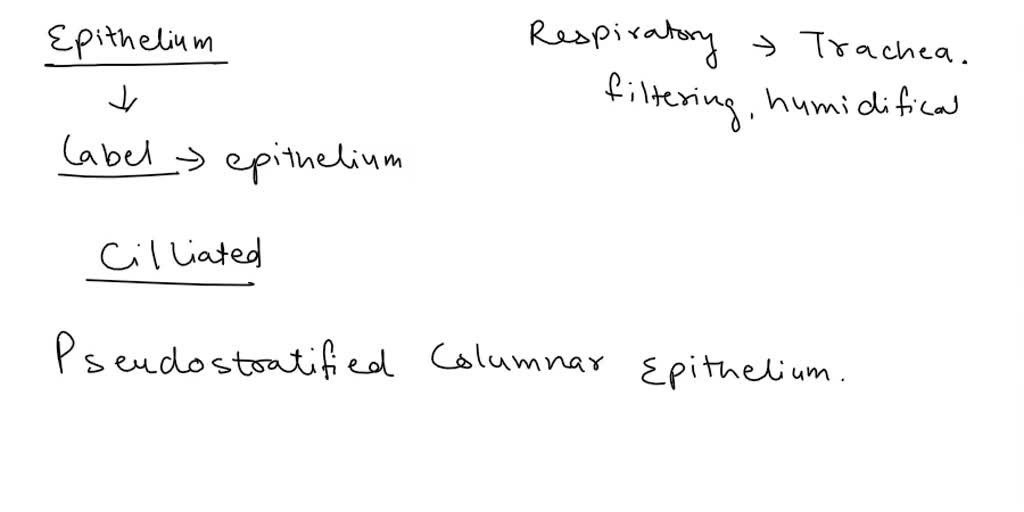 Epithelium
↓
Label → epithelium
Cilliated
Pseudostratified Columnar Epithelium.
Respiratory → Trachea.
filtering, humidifical